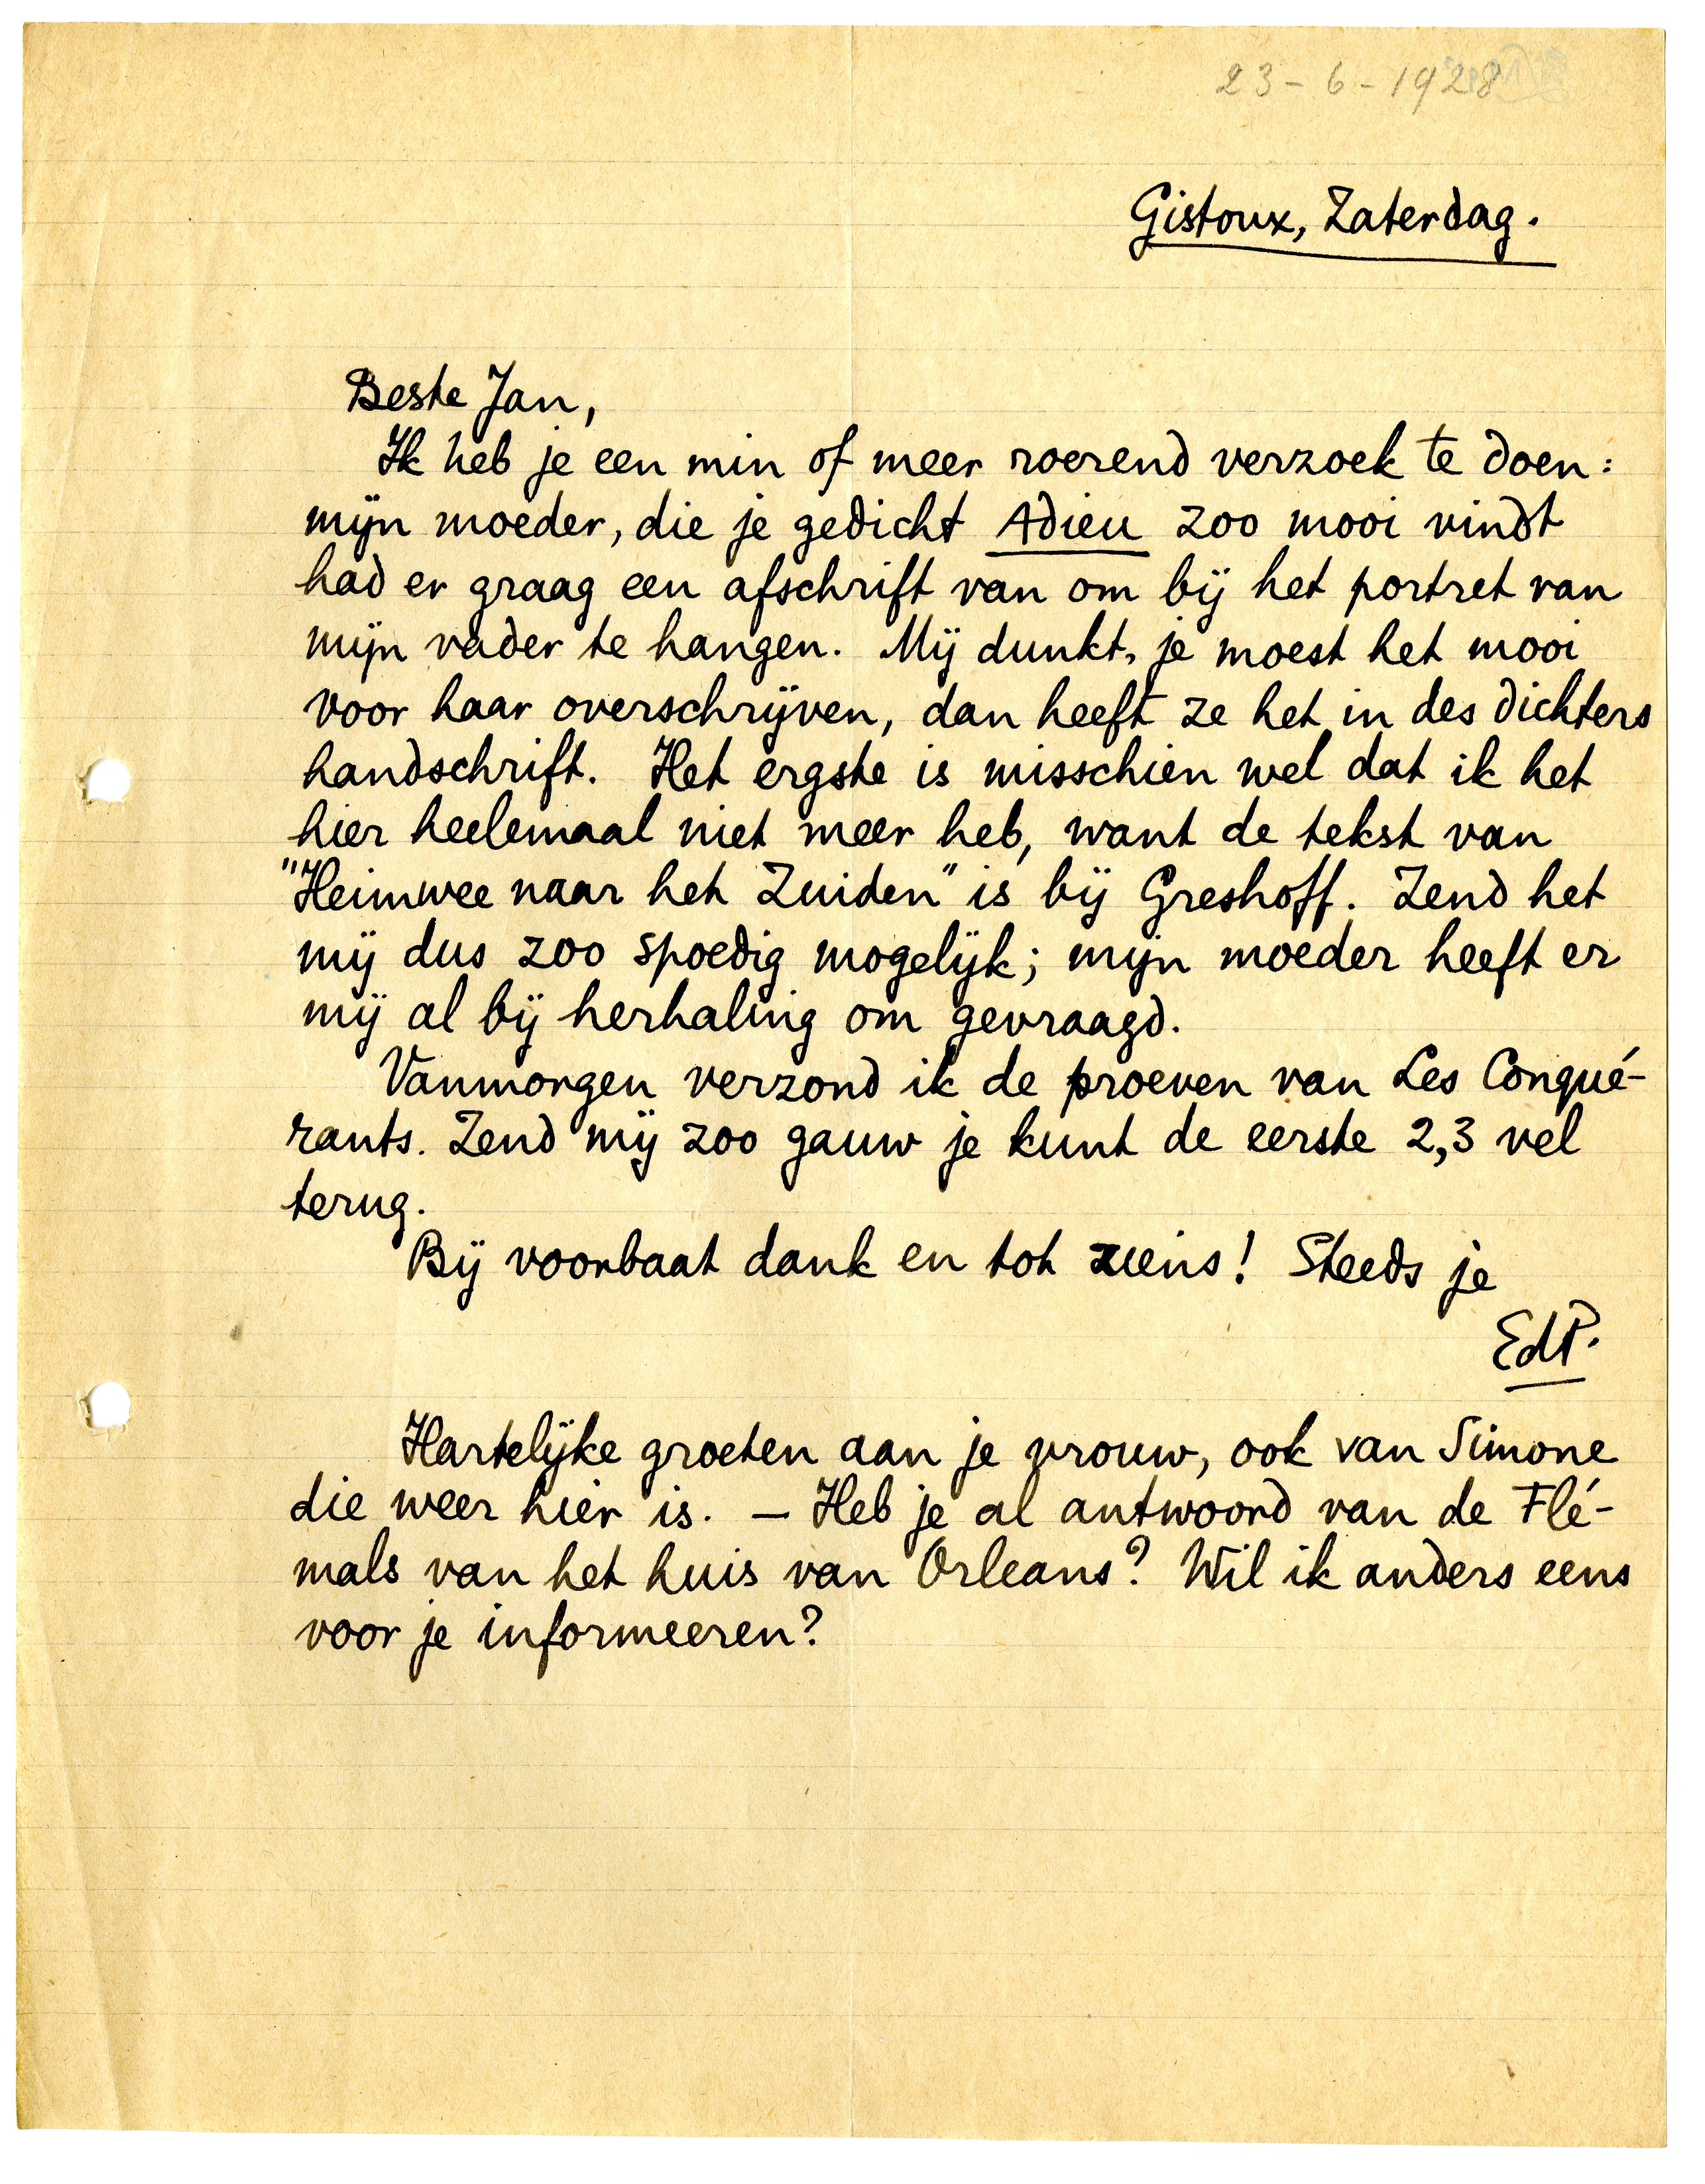 23-6-1928
Gistoux, Zaterdag.
Beste Jan,
Ik heb je een min of meer roerend verzoek te doen:
mijn moeder, die je gedicht Adieu zoo mooi vindt
had er graag een afschrift van om bij het portret van
mijn vader te hangen. Mij dunkt, je moest het mooi
voor haar overschrijven, dan heeft ze het in des dichters
handschrift. Het ergste is misschien wel dat ik het
hier heelemaal niet meer heb, want de tekst van
"Heimwee naar het Zuiden" is bij Greshoff. Zend het
mij dus zoo spoedig mogelijk; mijn moeder heeft er
mij al bij herhaling om gevraagd.
Vanmorgen verzond ik de proeven van Les Conqué-
rants. Zend mij zoo gauw je kunt de eerste 2,3 vel
terug.
Bij voorbaat dank en tot ziens! Steeds je
EdP.
Hartelijke groeten aan je vrouw, ook van Simone
die weer hier is. — Heb je al antwoord van de Flé-
mals van het huis van Orleans? Wil ik anders eens
voor je informeeren?